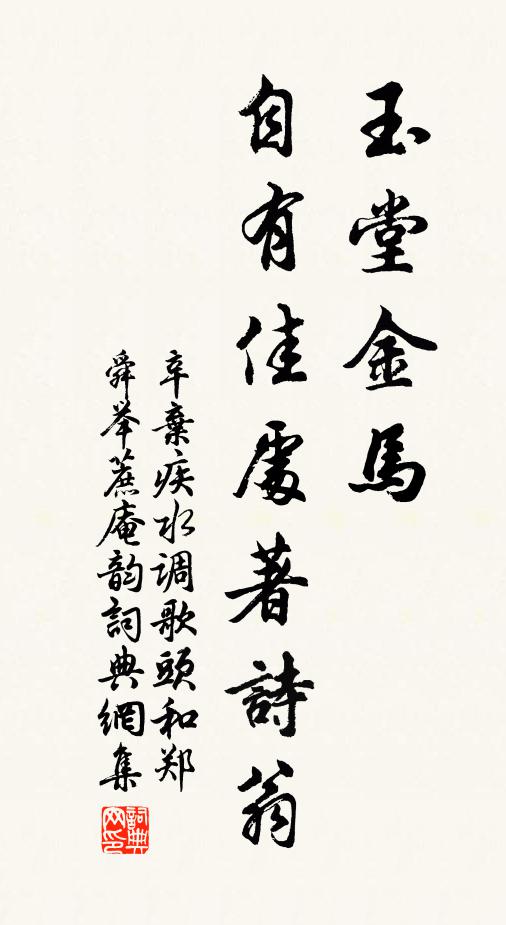 玉堂金馬
自有佳處著詩翁
辛棄疾水调歌頭和郑
舜举蔗庵韵詞典網集
詞典
网印